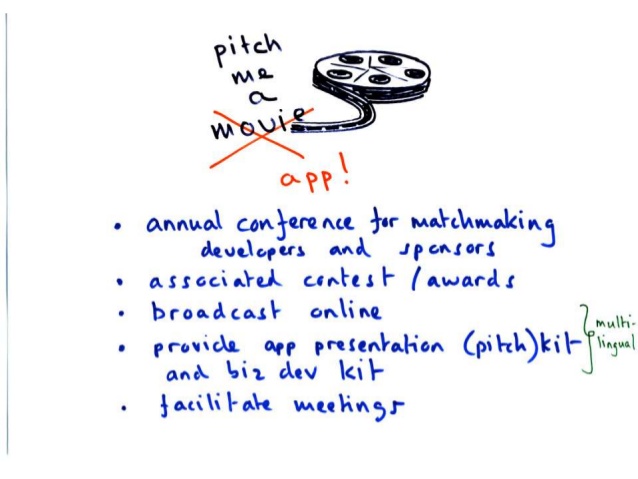 pitch
me
a
movie
app!
• annual conference for matchmaking
developers and sponsors
• associated contest / awards
• broadcast online
• provide app presentation (pitch) kit
and biz dev kit
multi-
lingual
• facilitate meetings